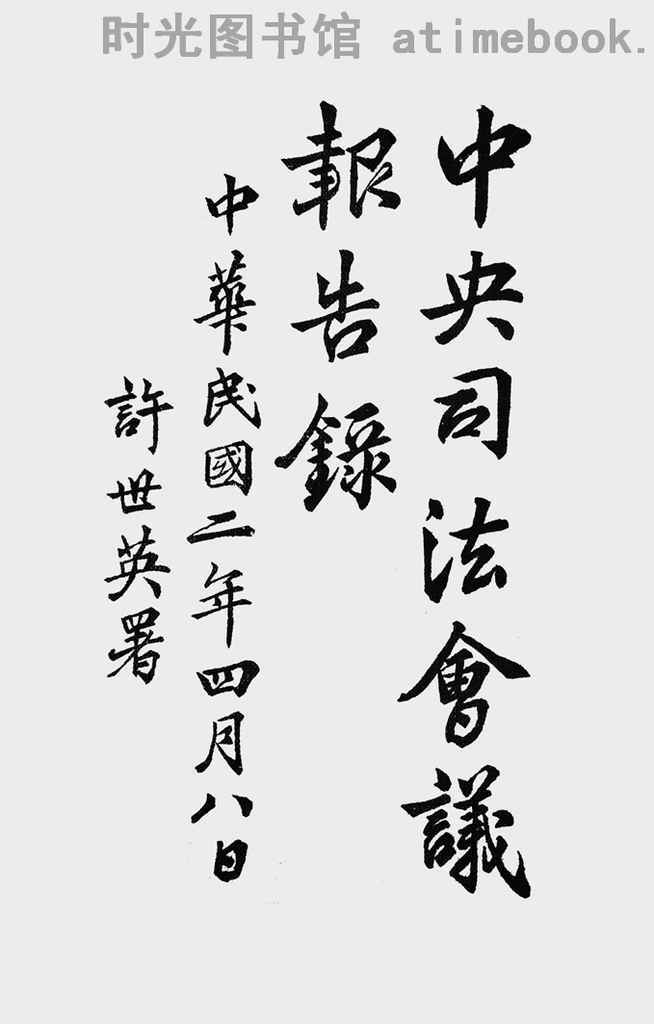 时光图书馆 atimebook.
中央司法會議
報告錄
中華民國二年四月八日
許世英署